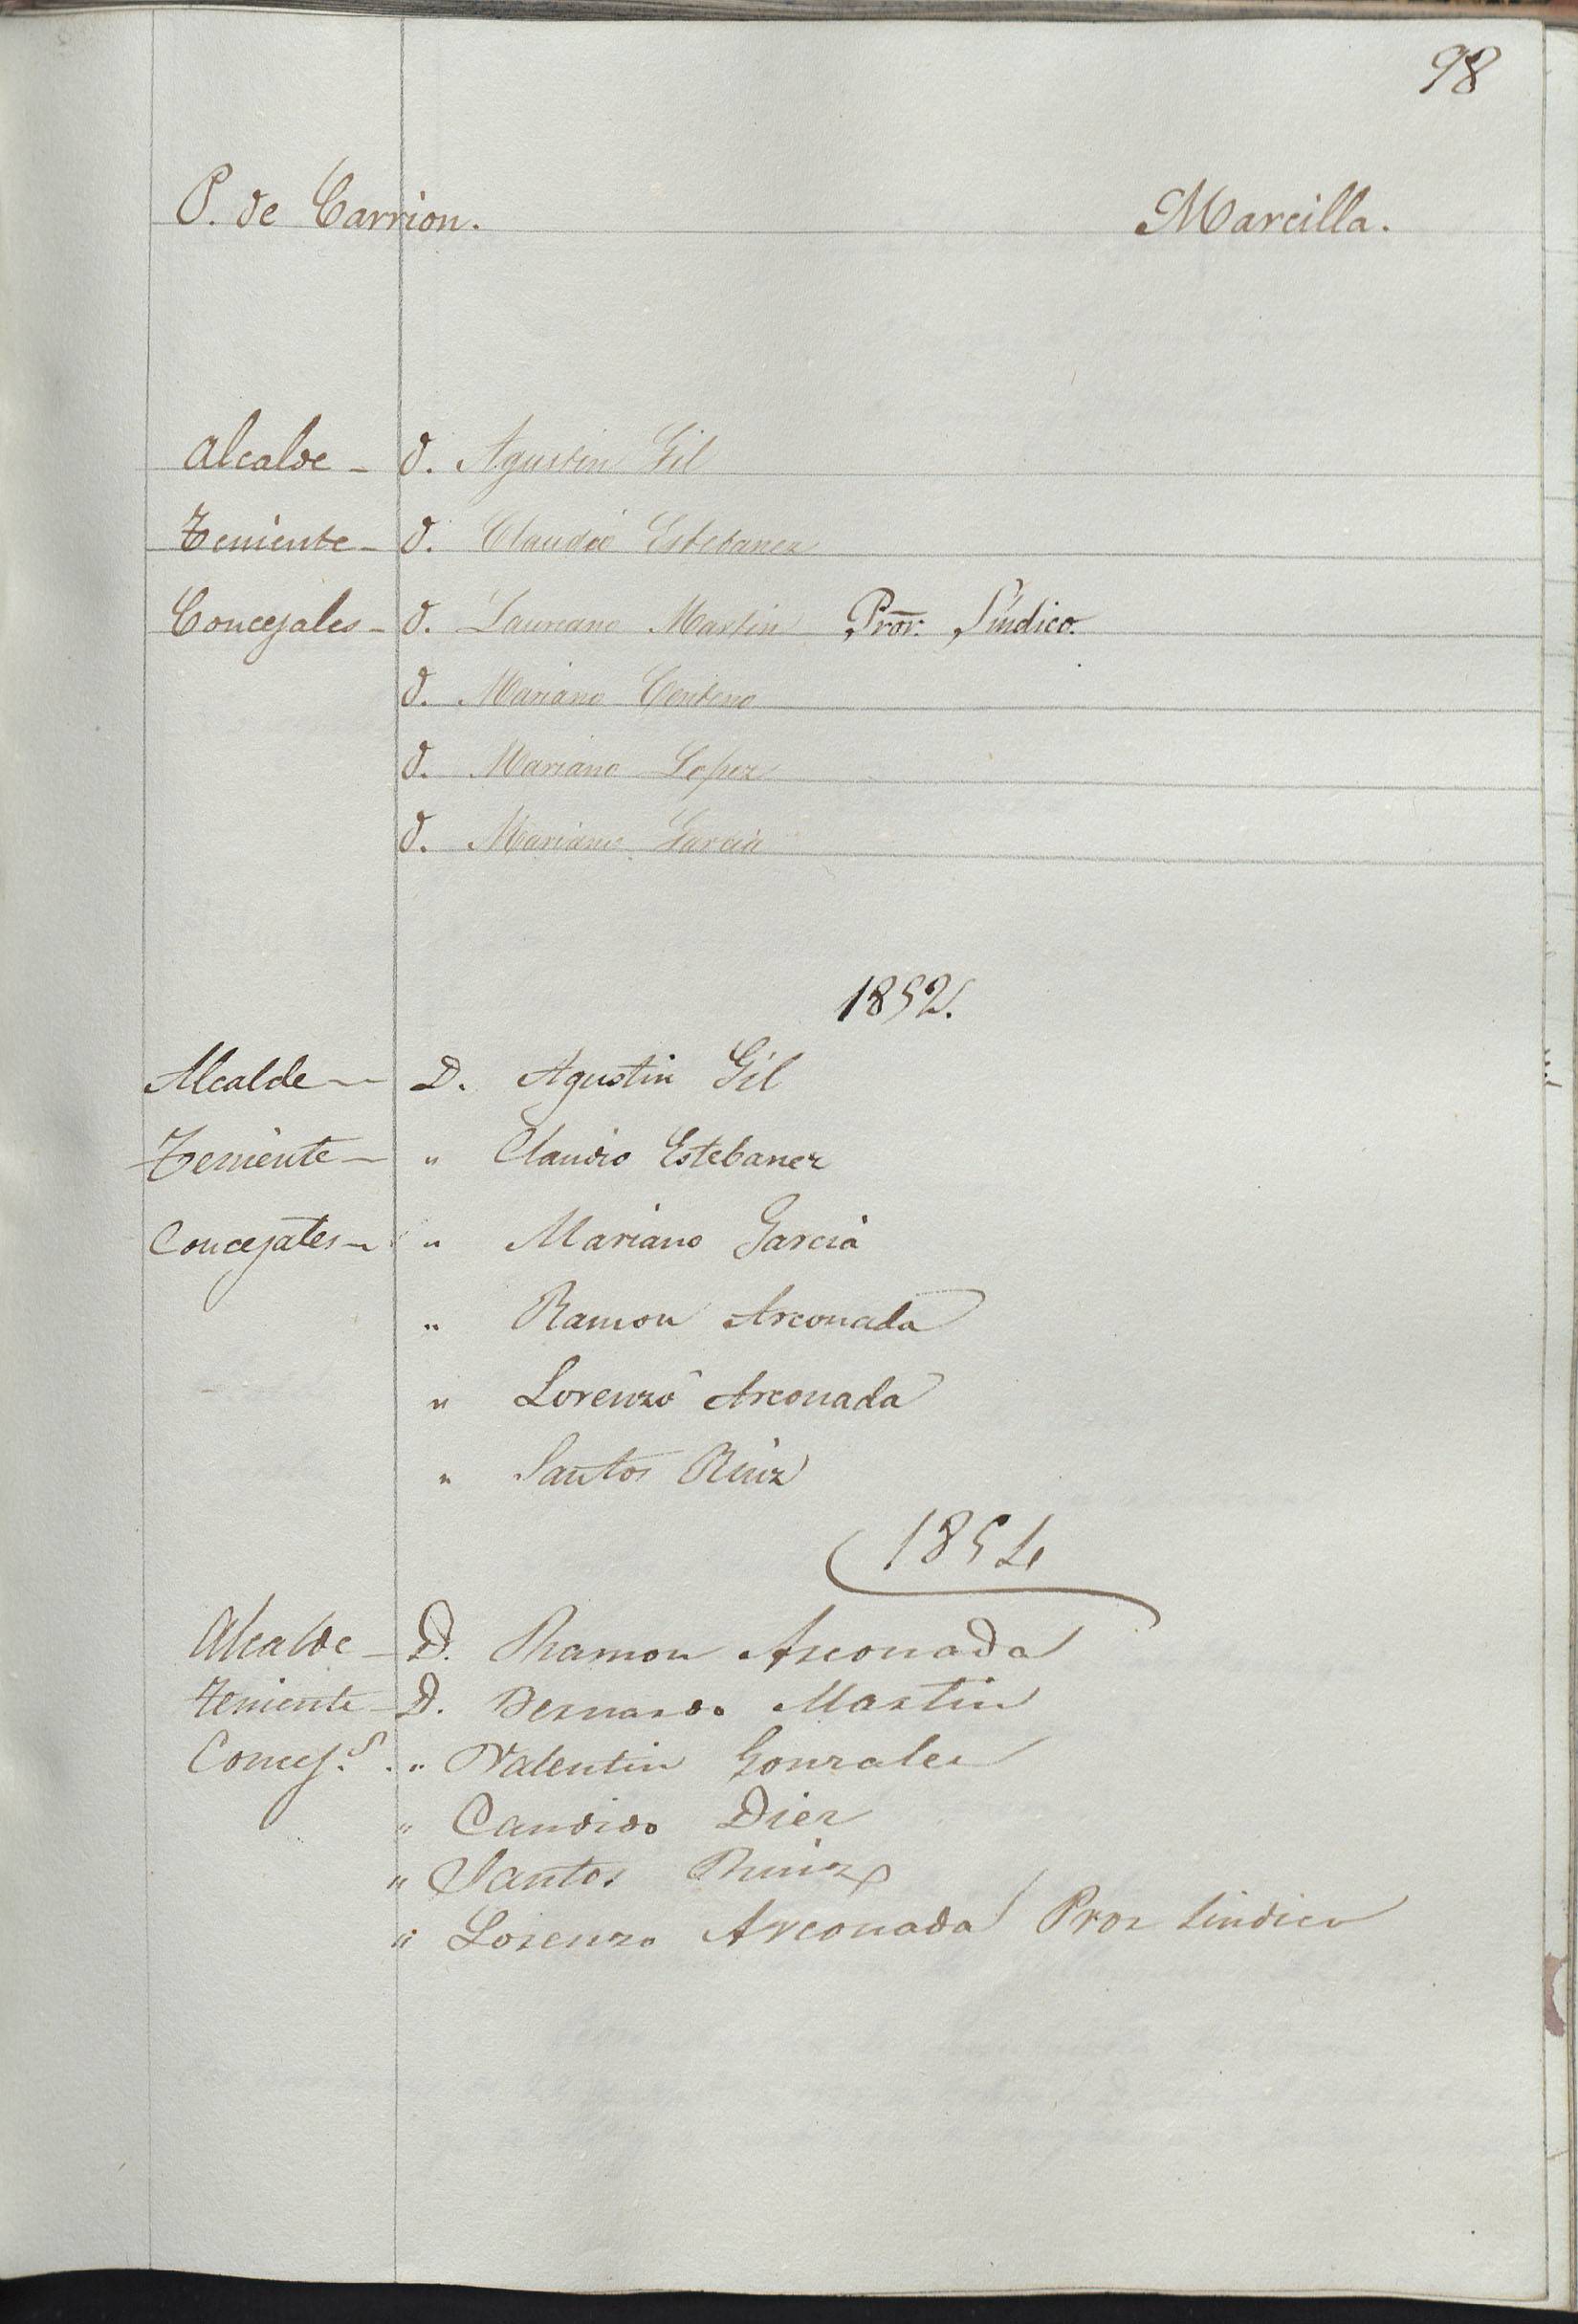 98
P. de Carrion. Marcilla.
Alcalde - D. Agustin Gil
Teniente - D. Claudio Estebanez
Concejales - D. Laureano Martin Pror. Síndico.
D. Mariano Centeno
D. Mariano Lopez
D. Mariano Garcia
1852.
Alcalde - D. Agustin Gil
Teniente - " Claudio Estebanez
Concejales - " Mariano Garcia
" Ramon Arconada
" Lorenzo Arconada
" Santos Ruiz
1854
Alcalde - D. Ramon Arconada
Teniente - D. Bernardo Martin
Concej.s " Valentin Gonzalez
" Candido Diez
" Santos Ruiz
" Lorenzo Arconada Pror Sindico